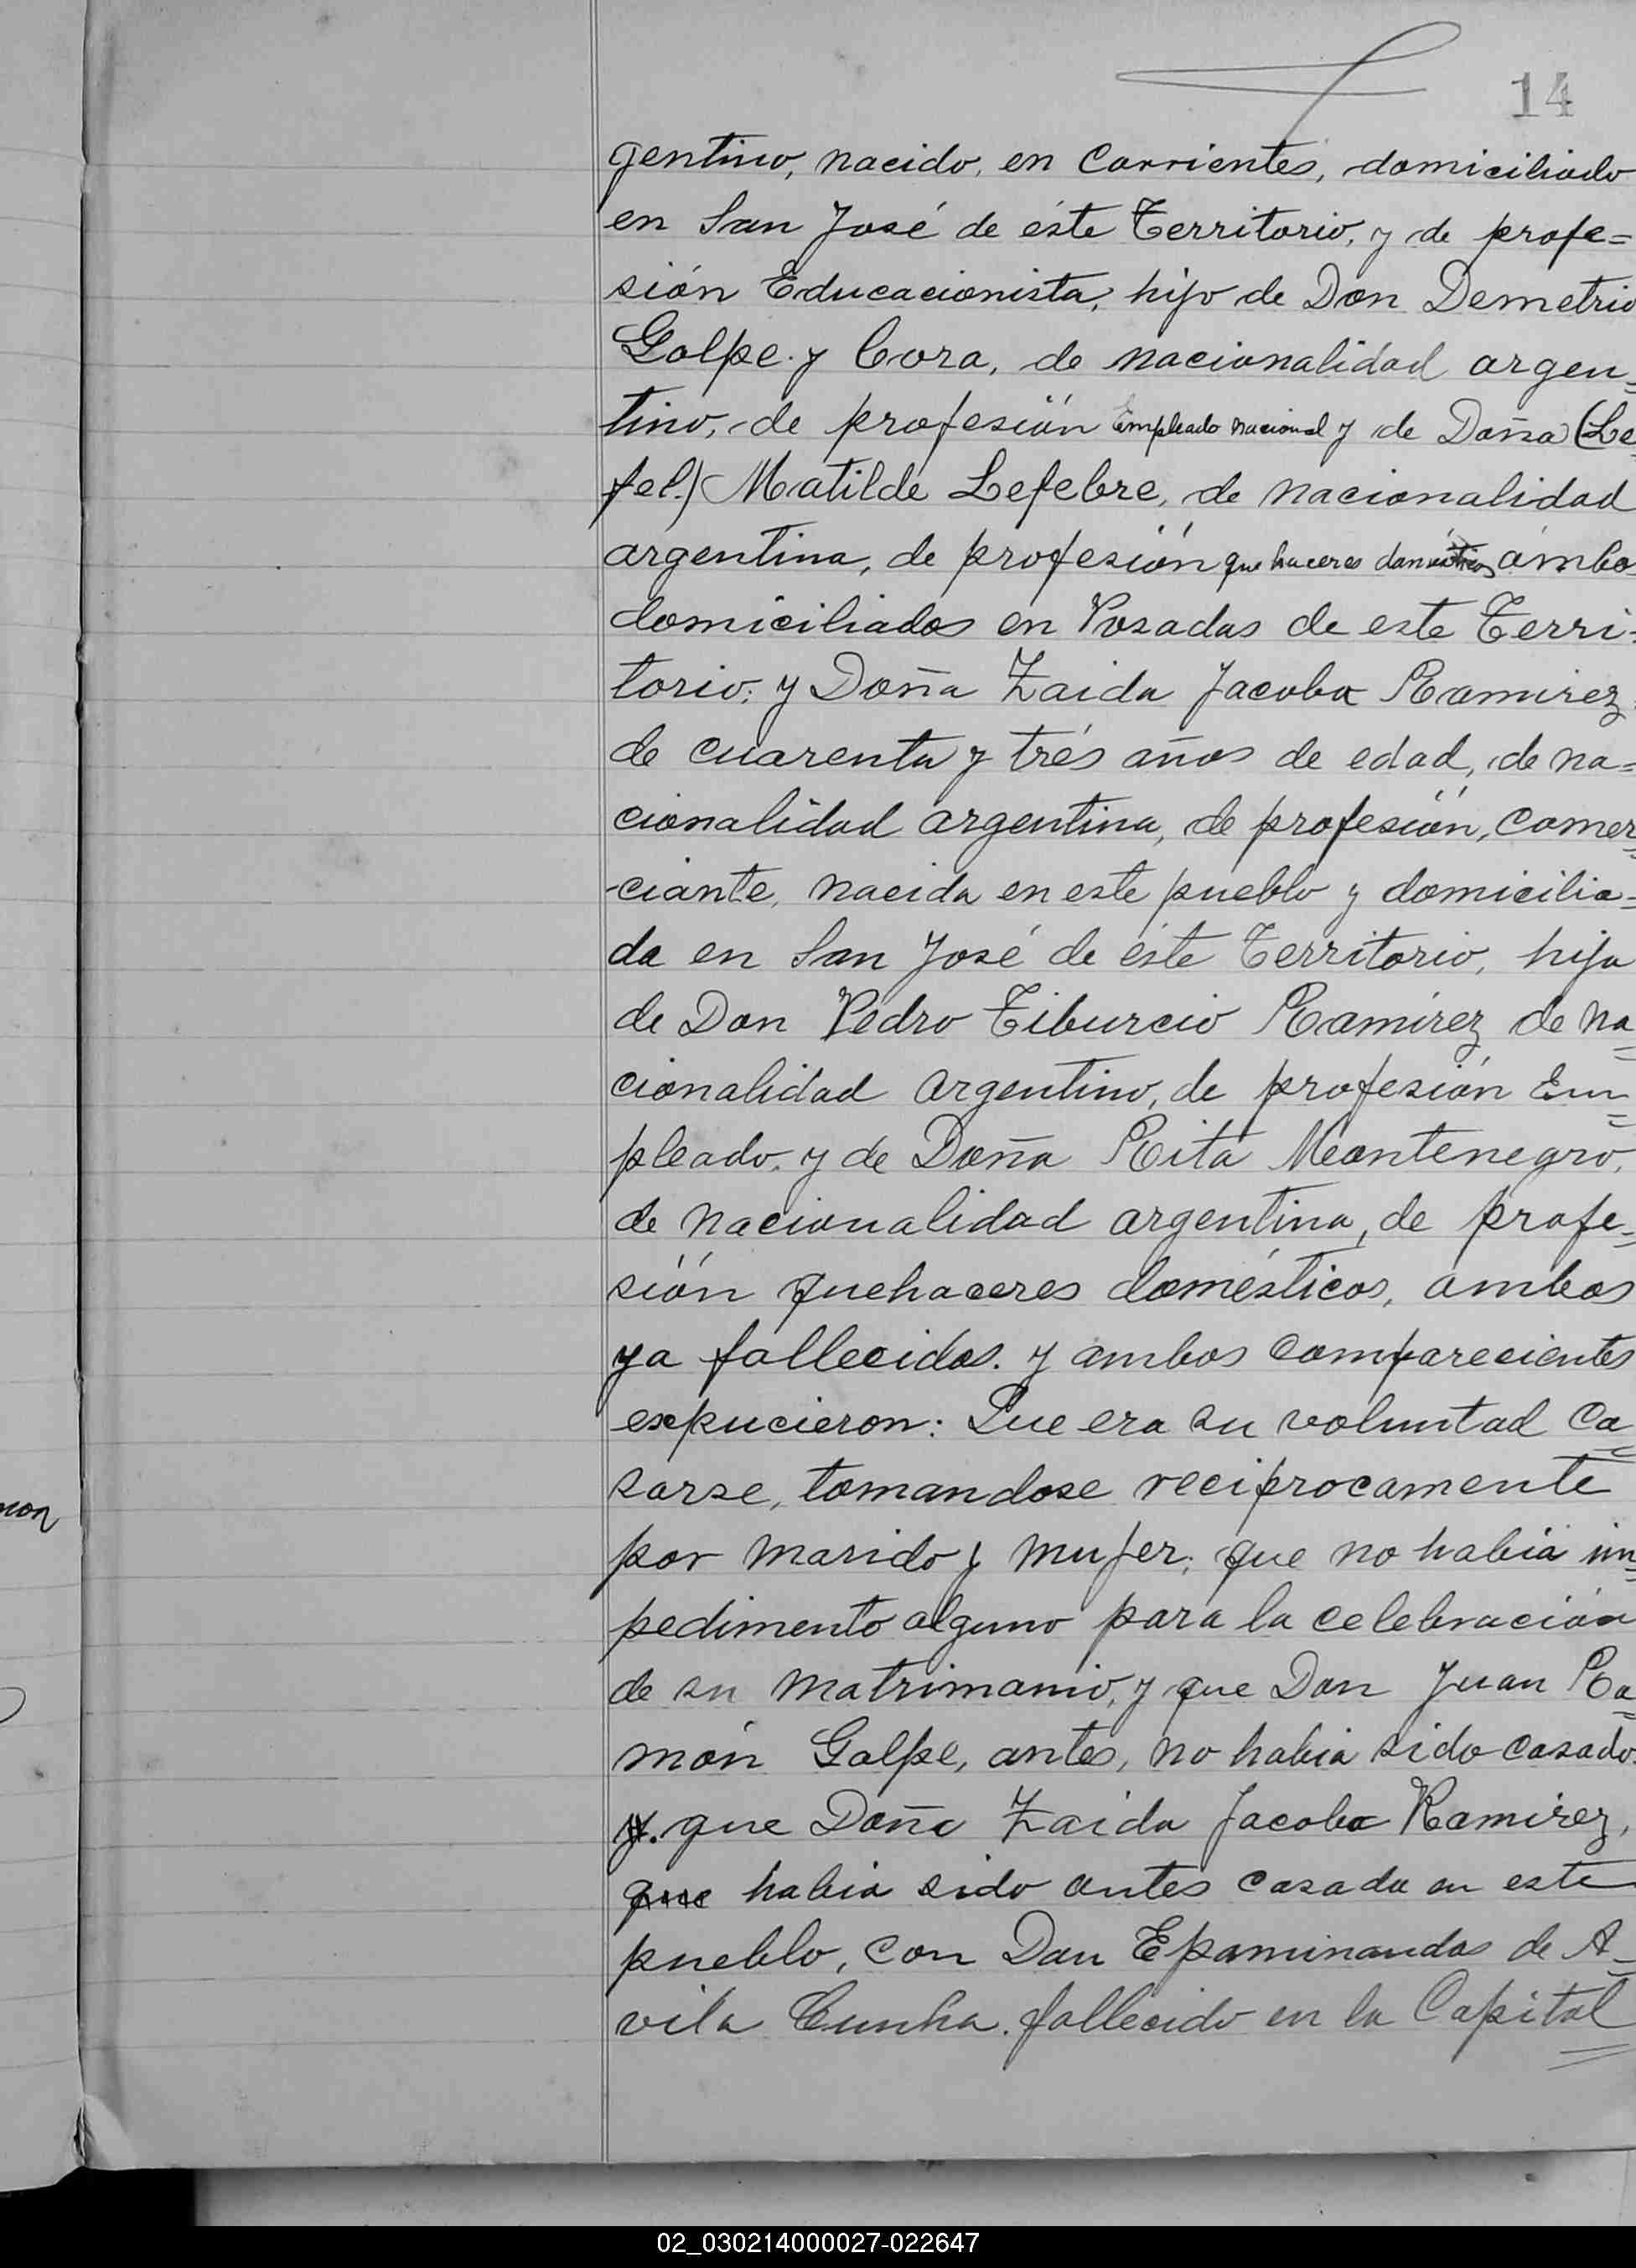 14
gentino, nacido, en Corrientes, domiciliado
en San José de éste Territorio, y de profe=
sión Educacionista, hijo de Don Demetrio
Golpe y Cora, de nacionalidad argen=
tino, de profesión Empleado nacional y de Doña (Le
fel.) Matilde Lefebre, de nacionalidad
argentina, de profesión que haceres domésticos ambos
domiciliados en Posadas de este Terri=
torio; y Doña Zaida Jacoba Ramirez
de cuarenta y trés años de edad, de na=
cionalidad argentina, de profesión, comer=
ciante, nacida en este pueblo y domicilia=
da en San José de éste Territorio, hija
de Don Pedro Tiburcio Ramírez de na=
cionalidad argentino, de profesión Em=
pleado, y de Doña Rita Montenegro,
de nacionalidad argentina, de profe=
sión quehaceres domésticos, ambos
ya fallecidos. y ambos comparecientes
expucieron: Que era su voluntad ca=
sarse, tomandose reciprocamente
por marido y mujer; que no había im=
pedimento alguno para la celebración
de su matrimonio, y que Don Juan Ra=
món Golpe, antes, no habia sido casado.
y. que Doña Zaida Jacoba Ramirez,
que habia sido antes casada en este
pueblo, con Don Epaminondas de A=
vila Cunha. fallecido en la Capital
mon
02_030214000027-022647